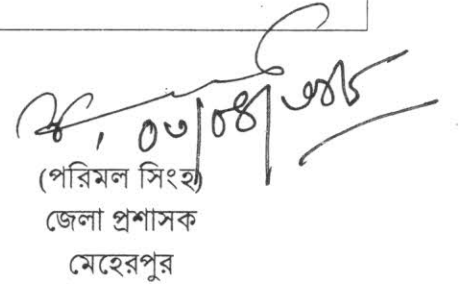 ০৩/০৪/
(পরিমল সিংহ)
জেলা প্রশাসক
মেহেরপুর